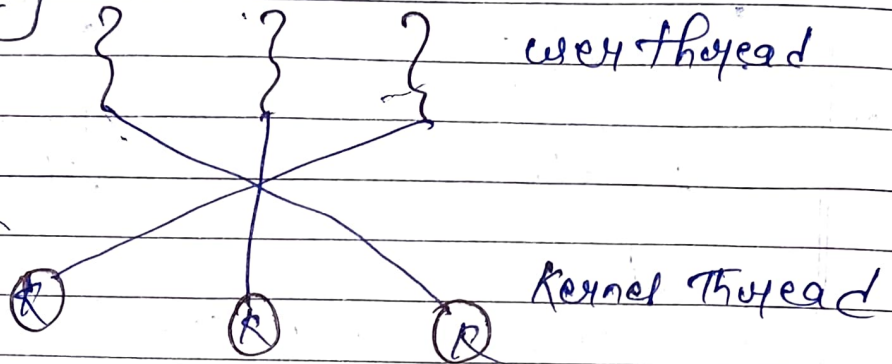 user thread
K K K
Kernel Thread